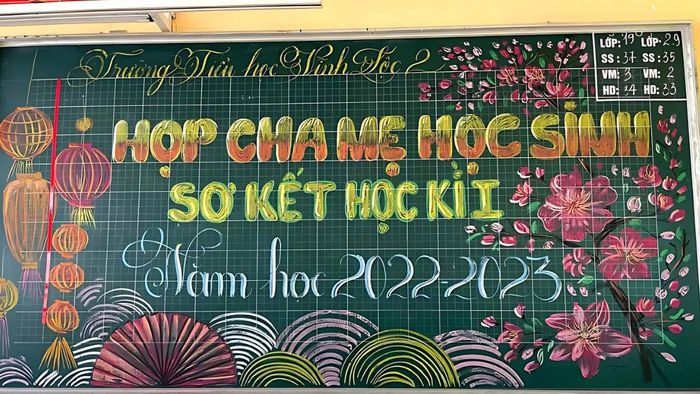 Trường Tiểu học Vĩnh Lộc 2
HỌP CHA MẸ HỌC SINH
SƠ KẾT HỌC KÌ I
Năm học 2022-2023
LỚP: 1.9 LỚP: 2.9
SS : 37 SS : 35
VM : 3 VM : 2
HD : 34 HD : 33